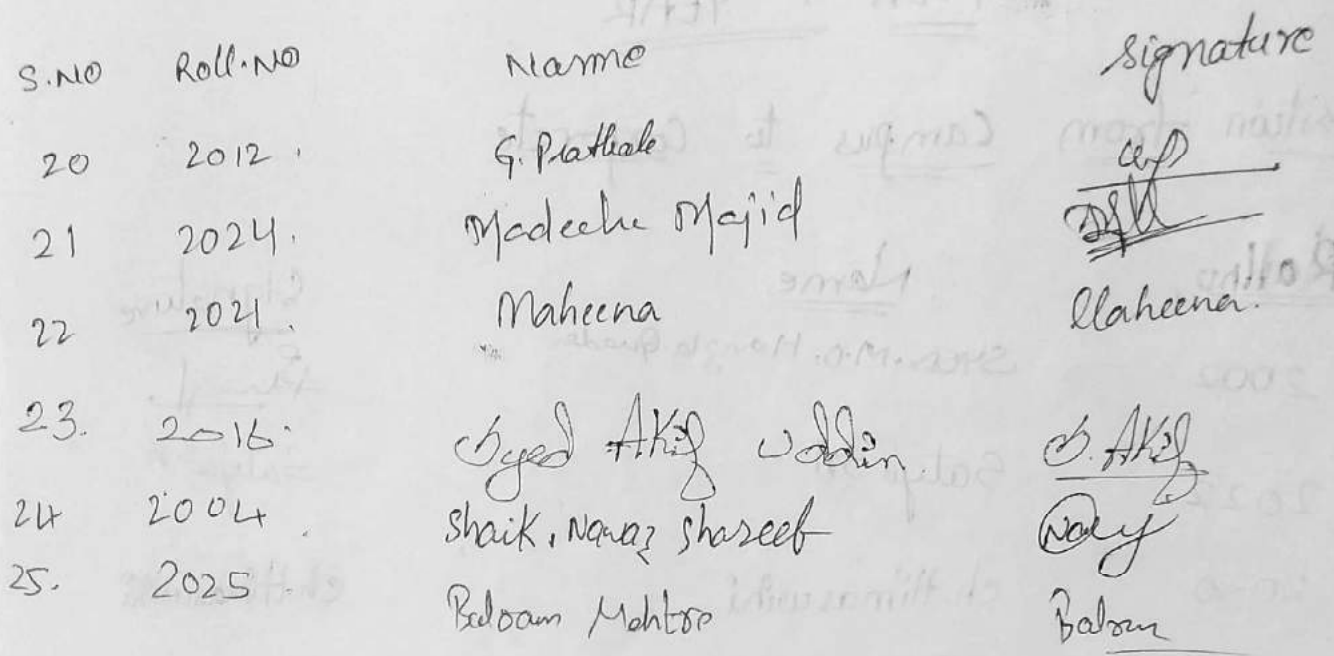 S.NO Roll.NO Name signature
20 2012. G. Prathale
21 2024. Madeeha Majid
22 2021. Maheena Maheena.
23. 2016. Syed Akif Uddin S. Akif
24 2004 Shaik. Nawaz Shareef
25. 2025. Balram Mehtre Balram